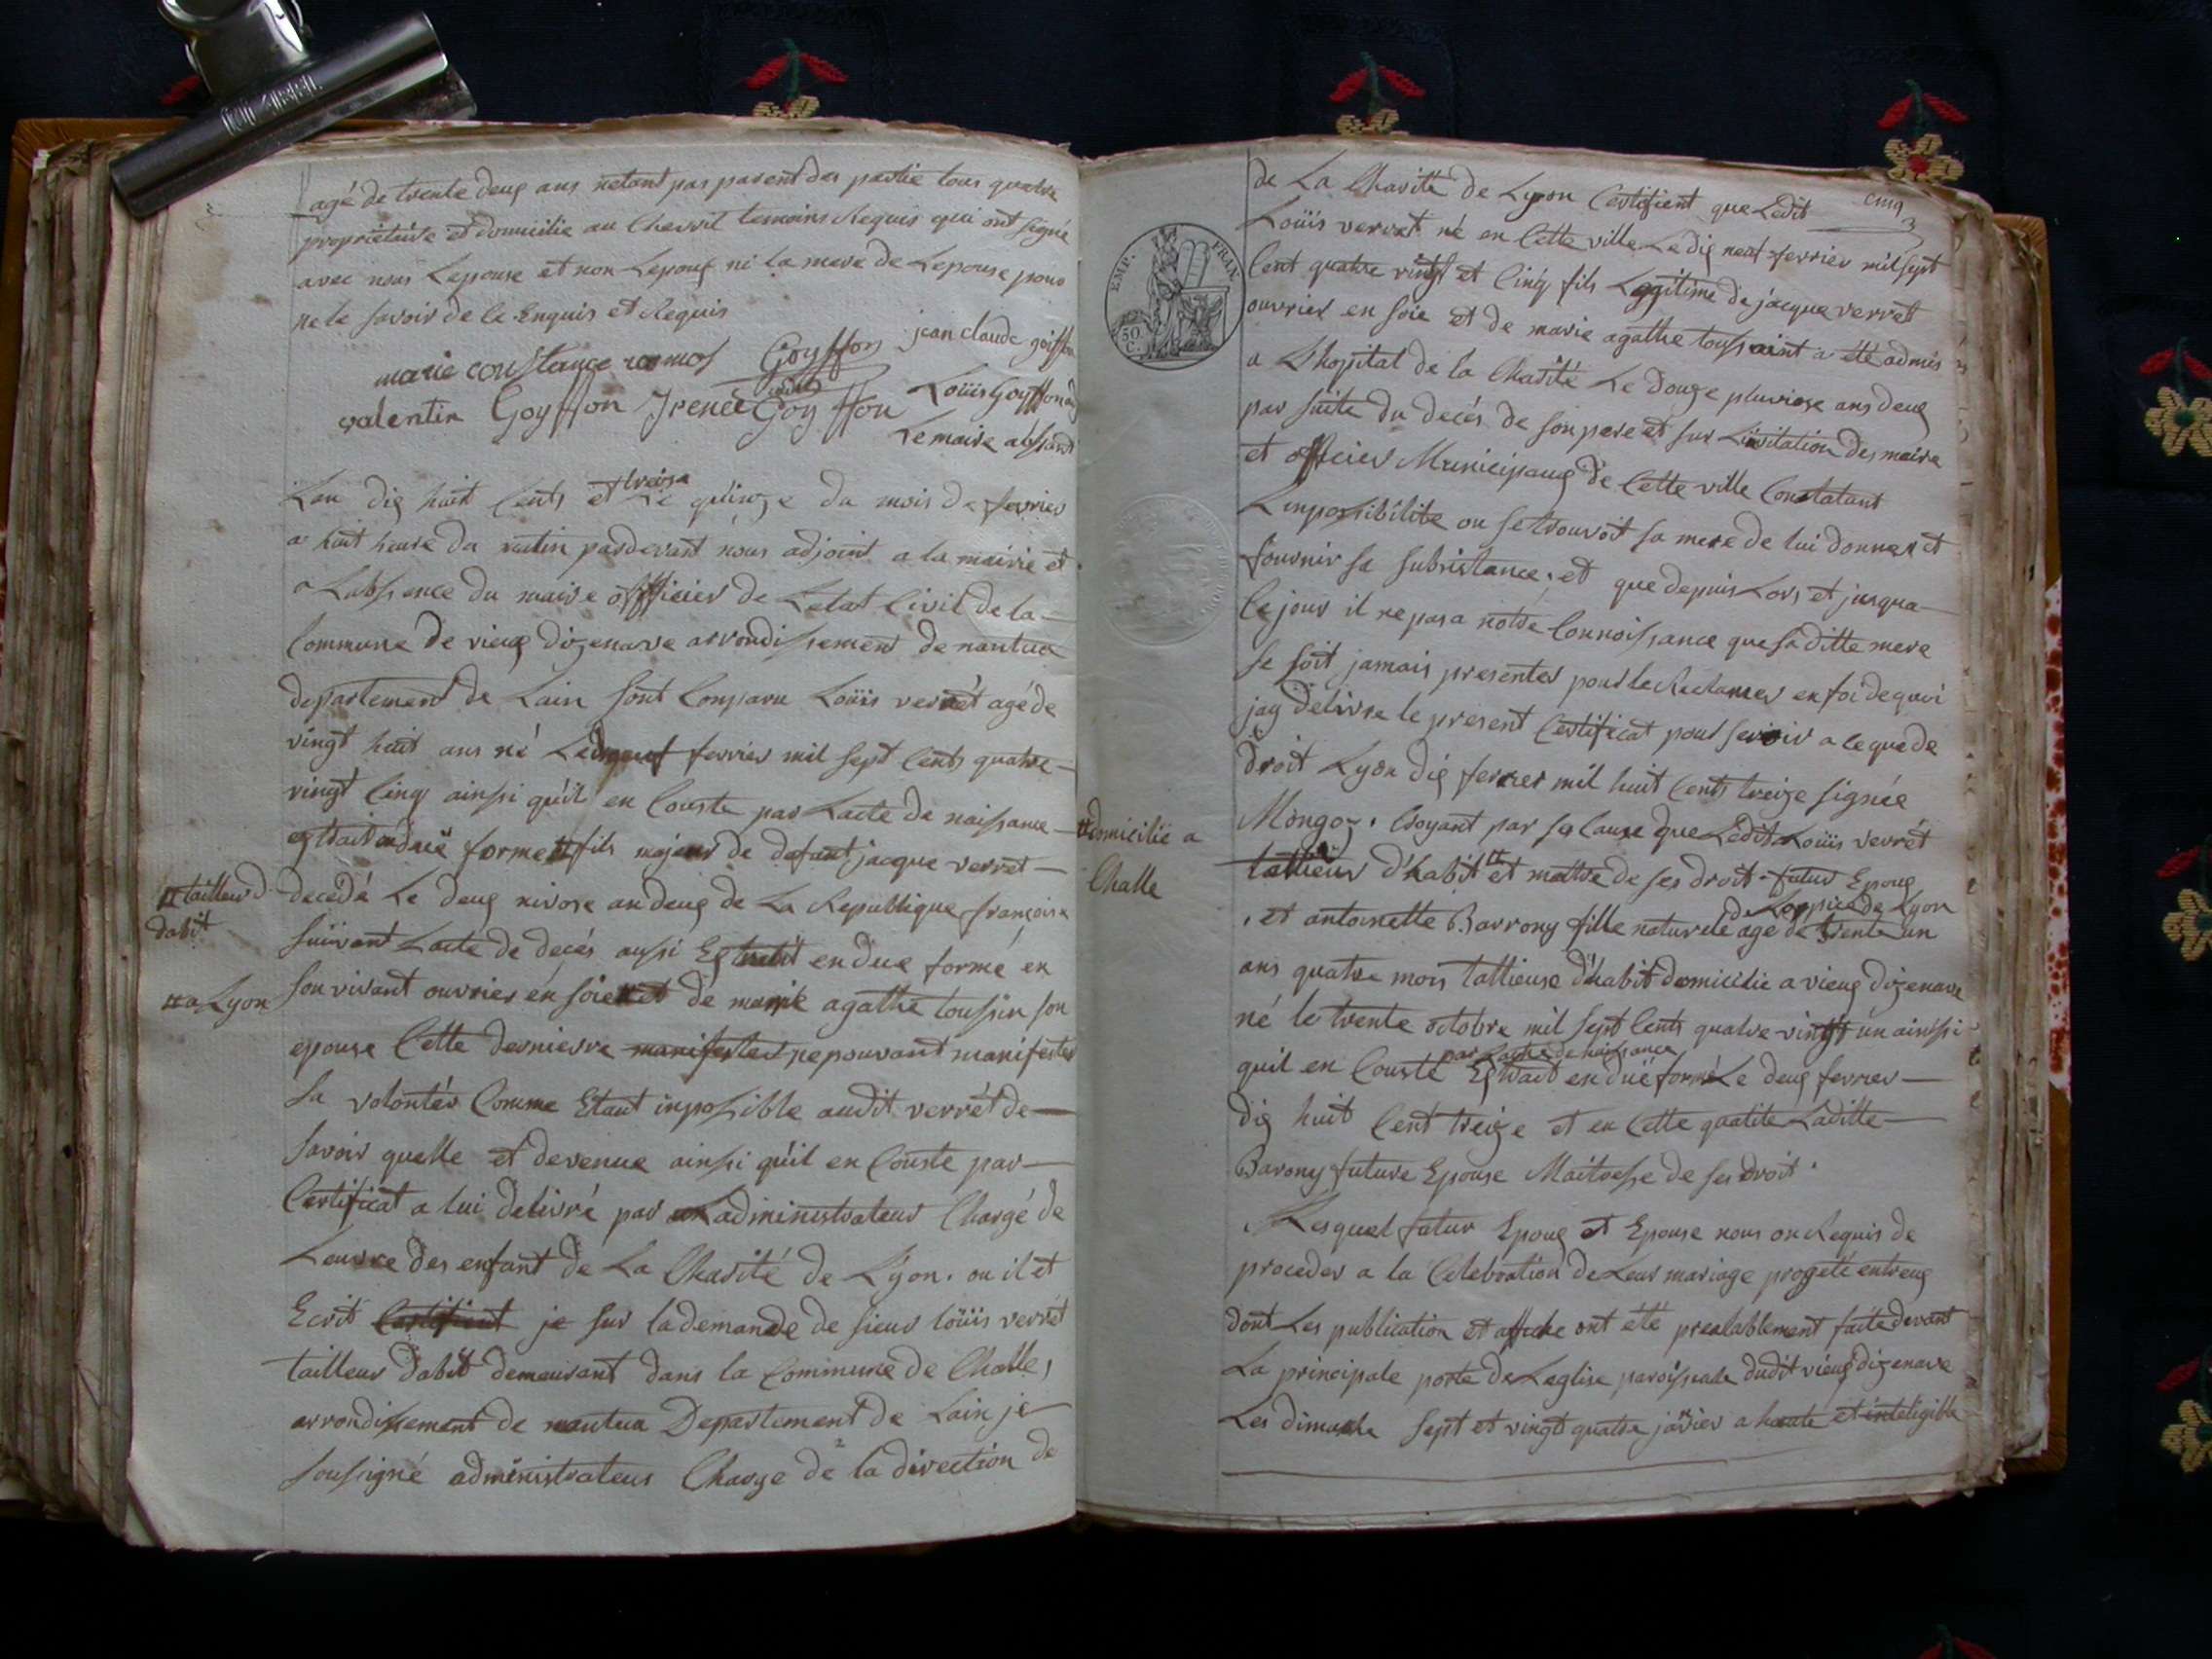 agé de trente deux ans netant pas parent des partie tous quatre
propriétaire et domicilie au Chevril temoins Requis qui ont signé
avec nous Lepouse et non Lepoux ni la mere de Lepouse pour
ne le savoir de ce Enquis et Requis
marie constance ramos Goyffon jean claude goiffon
valentin Goyffon Irenée Goyffon Loüis Goyffon adj
Le maire absant
Lan dix huit Cents et treise Le quinze du mois de fevrier
a huit heure du matin pardevant nous adjoint a la mairie et
a Labssence du maire offficier de Letat Civil de la
Commune de vieux dizenave arrondissement de nantua
departement de Lain sont Comparu Loüis verrét agé de
vingt huit ans né Ledixneuf fevrier mil sept Cents quatre
vingt Cinq ainsi quil en Conste par Lacte de naissance
extrait en düe forme fils majeur de defunt jacque verret
tailleur d
dabit
decedé Le deux nivose an deux de La Republique françoise
suivant Lacte de decés aussi Extrait en due forme en
a Lyon
son vivant ouvrier en soie et de marie agathe toussin son
epouse Cette derniere manifester ne pouvant manifester
sa volontér Comme Etant inpossible audit verrét de
savoir quelle et devenue ainsi quil en Conste par
Certificat a lui delivré par un administrateur Chargé de
Leuvre des enfant de La Charité de Lyon. ou il et
Ecrit Certifient je sur la demande de sieur loüis verrét
tailleur dabit demeurant dans la Commune de Challe,
arrondissement de nantua Departement de Lain je
soussigné administrateur Charge de la direction de
cinq
EMP. FRAN.
50 C.
de La Charité de Lyon Certifient que Ledit
Loüis verret né en Cette ville Le dix neuf fevrier mil sept
Cent quatre vingt et Cinq fils Legitime de jacque verrét
ouvrier en soie et de marie agathe toussaint a été admis
a Lhopital de la Charité Le douze pluviose ans deux
par suite du decés de son pere et sur Linvitation des maire
et officier Municipaux de Cette ville Constatant
Linpossibilite ou se trouvoit sa mere de lui donner et
fournir sa subsistance, et que depuis Lors et jusqua
Ce jour il ne pas a notre Connoissance que sa ditte mere
se soit jamais presenter pour le Reclamer en foi de quoi
jay delivre le present Certificat pour servir a ce que de
droit Lyon dix fevrier mil huit Cents treize signée
Mongoz. Croyant par se Cause que Ledit Loüis verrét
domicilie a
Challe
tallieur d'habit et maitre de ses droit futur Epoux
et antoinette Barrony fille naturele de Lospice de Lyon age de trente un
ans quatre mois tallieuse d'habit domicilie a vieux dizenave
né le trente octobre mil sept Cents quatre vingt un ainssi
quil en Conste par Lacte de naissance Extrait en düe forme Le deux fevrier
dix huit Cent treize et en Cette qualite Laditte
Barony future Epouse Maitresse de ses droit.
Lesquel futur Epoux et Epouse nous on Requis de
proceder a la Celebration de Leur mariage progeté entreux
dont Les publication et affiche ont été prealablement faite devant
La principale porte de Leglise paroissiale dudit vieux dizenave
Les dimanche sept et vingt quatre janvier a haute et inteligible